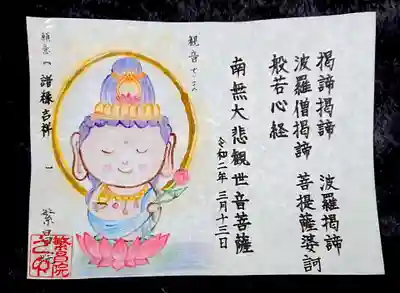 羯諦羯諦　波羅羯諦
波羅僧羯諦　菩提薩婆訶
般若心経
南無大悲観世音菩薩
令和二年 三月十三日
観音さま
願意「諸縁吉祥」
繁昌院